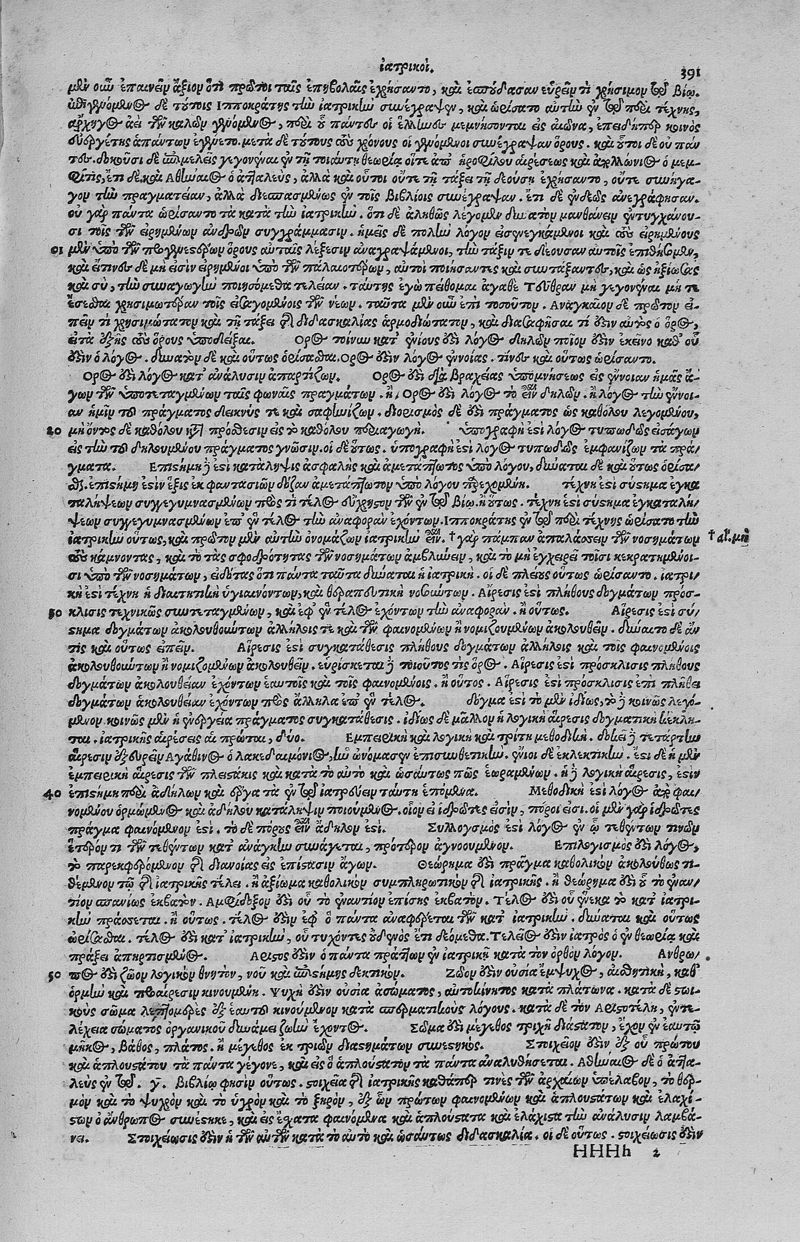 ἰατρικοί.
391
μὲν οὖν ἐπαινεῖν ἄξιον ὅτι πρῶτοι ταῖς ἐπιβολαῖς ἐχρήσαντο, καὶ ἐσπούδασαν εὑρεῖν τὶ χρήσιμον τῷ βίῳ.
τούτοις Ἱπποκράτης τὴν ἰατρικὴν συνέγραψεν, καὶ ὡρίσατο αὐτὴν ἐν τῷ περὶ τέχνης,
ἀρχηγὸς ἀεὶ τῶν καλῶν γενόμενος, περὶ οὗ πάντες οἱ ἕλληνες μεμνήσονται εἰς αἰῶνα, ἐπειδήπερ κοινὸς
εὐεργέτης ἁπάντων ἐγένετο. μετὰ δὲ τούτους τοὺς χρόνους οἱ γενόμενοι συνέγραψαν ὅρους. καὶ οὗτοι δὲ οὐ πάν
τες. δοκοῦσι δὲ ἐπιμελεῖς γεγονέναι ἐν τῇ τοιαύτῃ θεωρίᾳ οἵτε ἀπὸ ἡροφίλου αἱρέσεως καὶ ἀπολλώνιος ὁ μεμ-
φίτης, ἔτι δὲ καὶ ἀθήναιος ὁ ἀτταλεὺς, ἀλλὰ καὶ οὗτοι οὔτε τῇ τάξει τῇ δεούσῃ ἐχρήσαντο, οὔτε συνήγα-
γον τὴν πραγματείαν, ἀλλὰ διεσπασμένως ἐν τοῖς βιβλίοις συνέγραψαν. ἔτι δὲ ἐνδεῶς ἀνεγράφησαν.
οὐ γὰρ πάντα ὡρίσαντο τὰ κατὰ τὴν ἰατρικήν. ὅτι δὲ ἀληθῶς λέγομεν δυνατὸν μανθάνειν ἐντυγχάνου-
σι τοῖς τῶν εἰρημένων ἀνδρῶν συγγράμμασιν. ἡμεῖς δὲ πολὺν λόγον εἰσενεγκάμενοι καὶ τοὺς εἰρημένους
01 μὲν ὑπὸ τῶν πρεσβυτέρων ὅρους αὐταῖς λέξεσιν ἀναγραψάμενοι, τὴν τάξιν τε δέουσαν αὐτοῖς ἐπιθήσομεν,
καὶ εἴ τινες δὲ μή εἰσιν εἰρημένοι ὑπὸ τῶν παλαιοτέρων, αὐτοὶ ποιήσαντες καὶ συντάξαντες, καὶ ὡς ἠξίωσας
καὶ σὺ, τὴν συναγωγὴν ποιησόμεθα τελείαν. ταύτης ἐγὼ πείθομαι ἀγαθὲ Τεύθραν μὴ γεγονέναι μή τε
ἔσεσθαι χρησιμωτέραν τοῖς εἰσαγομένοις τῶν νέων. ταῦτα μὲν οὖν ἐπὶ τοσοῦτον. Ἀναγκαῖον δὲ πρῶτον εἰ-
πεῖν τί χρησιμώτατον καὶ τῇ τάξει τῆς διδασκαλίας ἁρμοδιώτατον, καὶ διασαφῆσαι τί ἐστιν αὐτὸς ὁ ὅρος,
εἶτα ἑξῆς τοὺς ὅρους ὑποδεῖξαι. Ὅρος τοίνυν κατ᾽ ἐνίους ἐστὶ λόγος δηλῶν ποῖόν ἐστιν ἐκεῖνο καθ᾽ οὗ
ἐστιν ὁ λόγος. δυνατὸν δὲ καὶ οὕτως ὁρίσασθαι. Ὅρος ἐστὶν λόγος ἐννοίας. τινὲς καὶ οὕτως ὡρίσαντο.
Ὅρος ἐστὶ λόγος κατ᾽ ἀνάλυσιν ἀπαρτίζων. Ὅρος ἐστὶ διὰ βραχείας ὑπομνήσεως εἰς ἔννοιαν ἡμᾶς ἄ-
γων τῶν ὑποτεταγμένων ταῖς φωναῖς πραγμάτων. ἢ, Ὅρος ἐστὶ λόγος τὸ τί ἦν εἶναι δηλῶν. ἢ λόγος τὴν ἔννοι-
αν ἡμῖν τοῦ πράγματος δεικνύς τε καὶ σαφηνίζων. διορισμὸς δέ ἐστὶ πράγματος ὡς καθόλου λεγομένου,
20 μὴ ὄντος δὲ καθόλου κατὰ πρόσθεσιν εἰς τὸ καθόλου περιαγωγή. ὑπογραφή ἐστὶ λόγος τυπωδῶς εἰσάγων
εἰς τὴν τοῦ δηλουμένου πράγματος γνῶσιν. οἱ δὲ οὕτως. ὑπογραφή ἐστὶ λόγος τυπωδῶς ἐμφανίζων τὰ πρά-
γματα. Ἐπιστήμη ἐστὶ κατάληψις ἀσφαλὴς καὶ ἀμετάπτωτος ὑπὸ λόγου, δύναται δὲ καὶ οὕτως ὁρίσα-
σθαι. ἐπιστήμη ἐστὶν ἕξις ἐκ φαντασιῶν δόξαν ἀμετάπτωτος ὑπὸ λόγου παρεχομένη. τέχνη ἐστὶ σύστημα ἐγκα
ταλήψεων συγγεγυμνασμένων πρός τι τέλος εὔχρηστον τῶν ἐν τῷ βίῳ. ἢ οὕτως. τέχνη ἐστὶ σύστημα ἐγκαταλή-
ψεων συγγεγυμνασμένων ἐφ᾽ ἓν τέλος τὴν ἀναφορὰν ἐχόντων. Ἱπποκράτης ἐν τῷ περὶ τέχνης ὡρίσατο τὴν
ἰατρικὴν οὕτως, καὶ πρῶτον μὲν αὐτὴν ὀνομάζων ἰατρικὴν εἶναι. †γὰρ πάμπαν ἀπαλάσσειν τῶν νοσημάτων †ἀλ. μὴ
τοὺς κάμνοντας, καὶ τὸ τὰς σφοδρότητας τῶν νοσημάτων ἀμβλύνειν, καὶ τὸ μὴ ἐγχειρεῖν τοῖσι κεκρατημένοι-
σι ὑπὸ τῶν νοσημάτων, εἰδότας ὅτι πάντα ταῦτα δύναται ἡ ἰατρική. οἱ δὲ πλείους οὕτως ὡρίσαντο. ἰατρι-
κή ἐστὶ τέχνη ἡ διαιτητικὴ ὑγιαινόντων, καὶ θεραπευτικὴ νοσούντων. Αἵρεσις ἐστὶ πλήθους δογμάτων πρόσ-
30 κλισις τεχνικῶς συντεταγμένων, καὶ ἐφ᾽ ἓν τέλος ἐχόντων τὴν ἀναφοράν. ἢ οὕτως. Αἵρεσις ἐστὶ σύ-
στημα δογμάτων ἀκολουθούντων ἀλλήλοις τε καὶ τῶν φαινομένων ἢ νομιζομένων ἀκολουθεῖν. δύναιτο δὲ ἄν
τις καὶ οὕτως εἰπεῖν. Αἵρεσις ἐστὶ συγκατάθεσις πλήθους δογμάτων ἀλλήλοις καὶ τοῖς φαινομένοις
ἀκολουθούντων ἢ νομιζομένων ἀκολουθεῖν. εὑρίσκεται ὁ τοιοῦτός τις ὅρος. Αἵρεσις ἐστὶ πρόσκλισις πλήθους
δογμάτων ἀκολουθίαν ἐχόντων ἑαυτοῖς καὶ τοῖς φαινομένοις. ἢ οὕτως. Αἵρεσις ἐστὶ πρόσκλισις ἐπὶ πλήθει
δογμάτων ἀκολουθίαν ἐχόντων πρὸς ἄλληλα ἐφ᾽ ἓν τέλος. δόγμα ἐστὶ τὸ μὲν ἰδίως, τὸ δὲ κοινῶς λεγό-
μενον. κοινῶς μὲν ἡ ἐνάργεια πράγματος συγκατάθεσις. ἰδίως δὲ μᾶλλον ἡ λογικὴ αἵρεσις δογματικὴ κέκλη-
ται. ἰατρικῆς αἱρέσεις αἱ πρῶται, δύο. Ἐμπειρικὴ καὶ λογικὴ καὶ τρίτη μεθοδική. δοκεῖ δὲ τετάρτην
αἵρεσιν ἐξευρεῖν Ἀγαθῖνος ὁ λακεδαιμόνιος, ἣν ὠνόμασεν ἐπισυνθετικήν. ἔνιοι δὲ ἐκλεκτικήν. ἔστι δὲ ἡ μὲν
ἐμπειρικὴ αἵρεσις τῶν πλειστάκις καὶ κατὰ τὸ αὐτὸ καὶ ὡσαύτως πῶς ἑωραμένων. ἡ δὲ λογικὴ αἵρεσις, ἐστὶν
40 ἐπιστήμη περὶ ἀδήλων καὶ ἔργα τὰ ἐν τῷ ἰατρεύειν ταύτῃ ἑπόμενα. Μεθοδικὴ ἐστὶ λόγος ἀπὸ φαι-
νομένου ὁρμώμενος καὶ ἀδήλου κατάληψιν ποιούμενος. οἷον εἰ ἱδρῶτές εἰσιν, πόροι εἰσί. οἱ μὲν γὰρ ἱδρῶτες
πρᾶγμα φαινόμενον ἐστί. τὸ δὲ πόρους εἶναι ἄδηλον ἐστί. Συλλογισμὸς ἐστὶ λόγος ἐν ᾧ τεθέντων τινῶν
ἕτερόν τι τῶν τεθέντων κατ᾽ ἀνάγκην συνάγεται, πρότερον ἀγνοούμενον. Ἐπιλογισμὸς ἐστὶ λόγος,
τὸ παρεκφερόμενον τῆς διανοίας εἰς ἐπίστασιν ἄγων. Θεώρημα ἐστὶ πρᾶγμα καθολικὸν ἀκολούθως τι-
θέμενον τῷ τῆς ἰατρικῆς τέλει. ἢ ἀξίωμα καθολικὸν συμπληρωτικὸν τῆς ἰατρικῆς. ἢ θεώρημα ἐστὶ οὗ τὸ ἐναν-
τίον σπανίως ἐκβαῖνον. Ἀμφίδοξον ἐστὶ οὗ τὸ ἐναντίον ἐπίσης ἐκβαῖνον. Τέλος ἐστὶ οὗ ἕνεκα τὰ κατ᾽ ἰατρι-
κὴν πράσσεται. ἢ οὕτως. τέλος ἐστὶν ἐφ᾽ ὃ πάντα ἀναφέρεται τῶν κατ᾽ ἰατρικήν. δύναται καὶ οὕτως
ὡρίσθαι. τέλος ἐστὶ κατ᾽ ἰατρικὴν, οὗ τυχόντες οὐδενὸς ἔτι δεόμεθα. Τέλειός ἐστὶν ἰατρὸς ὁ ἐν θεωρίᾳ καὶ
πράξει ἀπηρτισμένος. Ἄριστος ἐστὶν ὁ πάντα πράττων ἐν ἰατρικῇ κατὰ τὸν ὀρθὸν λόγον. Ἄνθρω-
50 πος ἐστὶ ζῶον λογικὸν θνητὸν, νοῦ καὶ ἐπιστήμης δεκτικόν. Ζῶον ἐστὶν οὐσία ἔμψυχος, αἰσθητικὴ, καθ᾽
ὁρμὴν καὶ προαίρεσιν κινουμένη. Ψυχή ἐστὶν οὐσία ἀσώματος, αὐτοκίνητος κατὰ πλάτωνα. κατὰ δὲ στωι-
κοὺς σῶμα λεπτομερὲς ἐξ ἑαυτοῦ κινούμενον κατὰ σπερματικοὺς λόγους. κατὰ δὲ τὸν Ἀριστοτέλη, ἐντε-
λέχεια σώματος ὀργανικοῦ δυνάμει ζωὴν ἔχοντος. Σῶμα ἐστὶ μέγεθος τριχῆ διάστατον, ἔχον ἐν ἑαυτῷ
μῆκος, βάθος, πλάτος. ἢ μέγεθος ἐκ τριῶν διαστημάτων συνεστηκός. Στοιχεῖον ἐστὶν ἐξ οὗ πρώτου
καὶ ἁπλουστάτου τὰ πάντα γέγονε, καὶ εἰς ὃ ἁπλούστατον τὰ πάντα ἀναλυθήσεται. Ἀθήναιος δὲ ὁ ἀττα-
λεὺς ἐν τῷ. γ. βιβλίῳ φησὶν οὕτως. στοιχεῖα τῆς ἰατρικῆς καθάπερ τινὲς τῶν ἀρχαίων ὑπέλαβον, τὸ θερ-
μὸν καὶ τὸ ψυχρὸν καὶ τὸ ὑγρὸν καὶ τὸ ξηρὸν, ἐξ ὧν πρώτων φαινομένων καὶ ἁπλουστάτων καὶ ἐλαχί-
στων ὁ ἄνθρωπος συνέστηκε, καὶ εἰς ἔσχατα φαινόμενα καὶ ἁπλούστατα καὶ ἐλάχιστα τὴν ἀνάλυσιν λαμβά-
νει. Στοιχείωσις ἐστὶν ἡ τῶν αὐτῶν κατὰ τὸ αὐτὸ καὶ ὡσαύτως διδασκαλία. οἱ δὲ οὕτως. στοιχείωσις ἐστὶν
HHHh 2